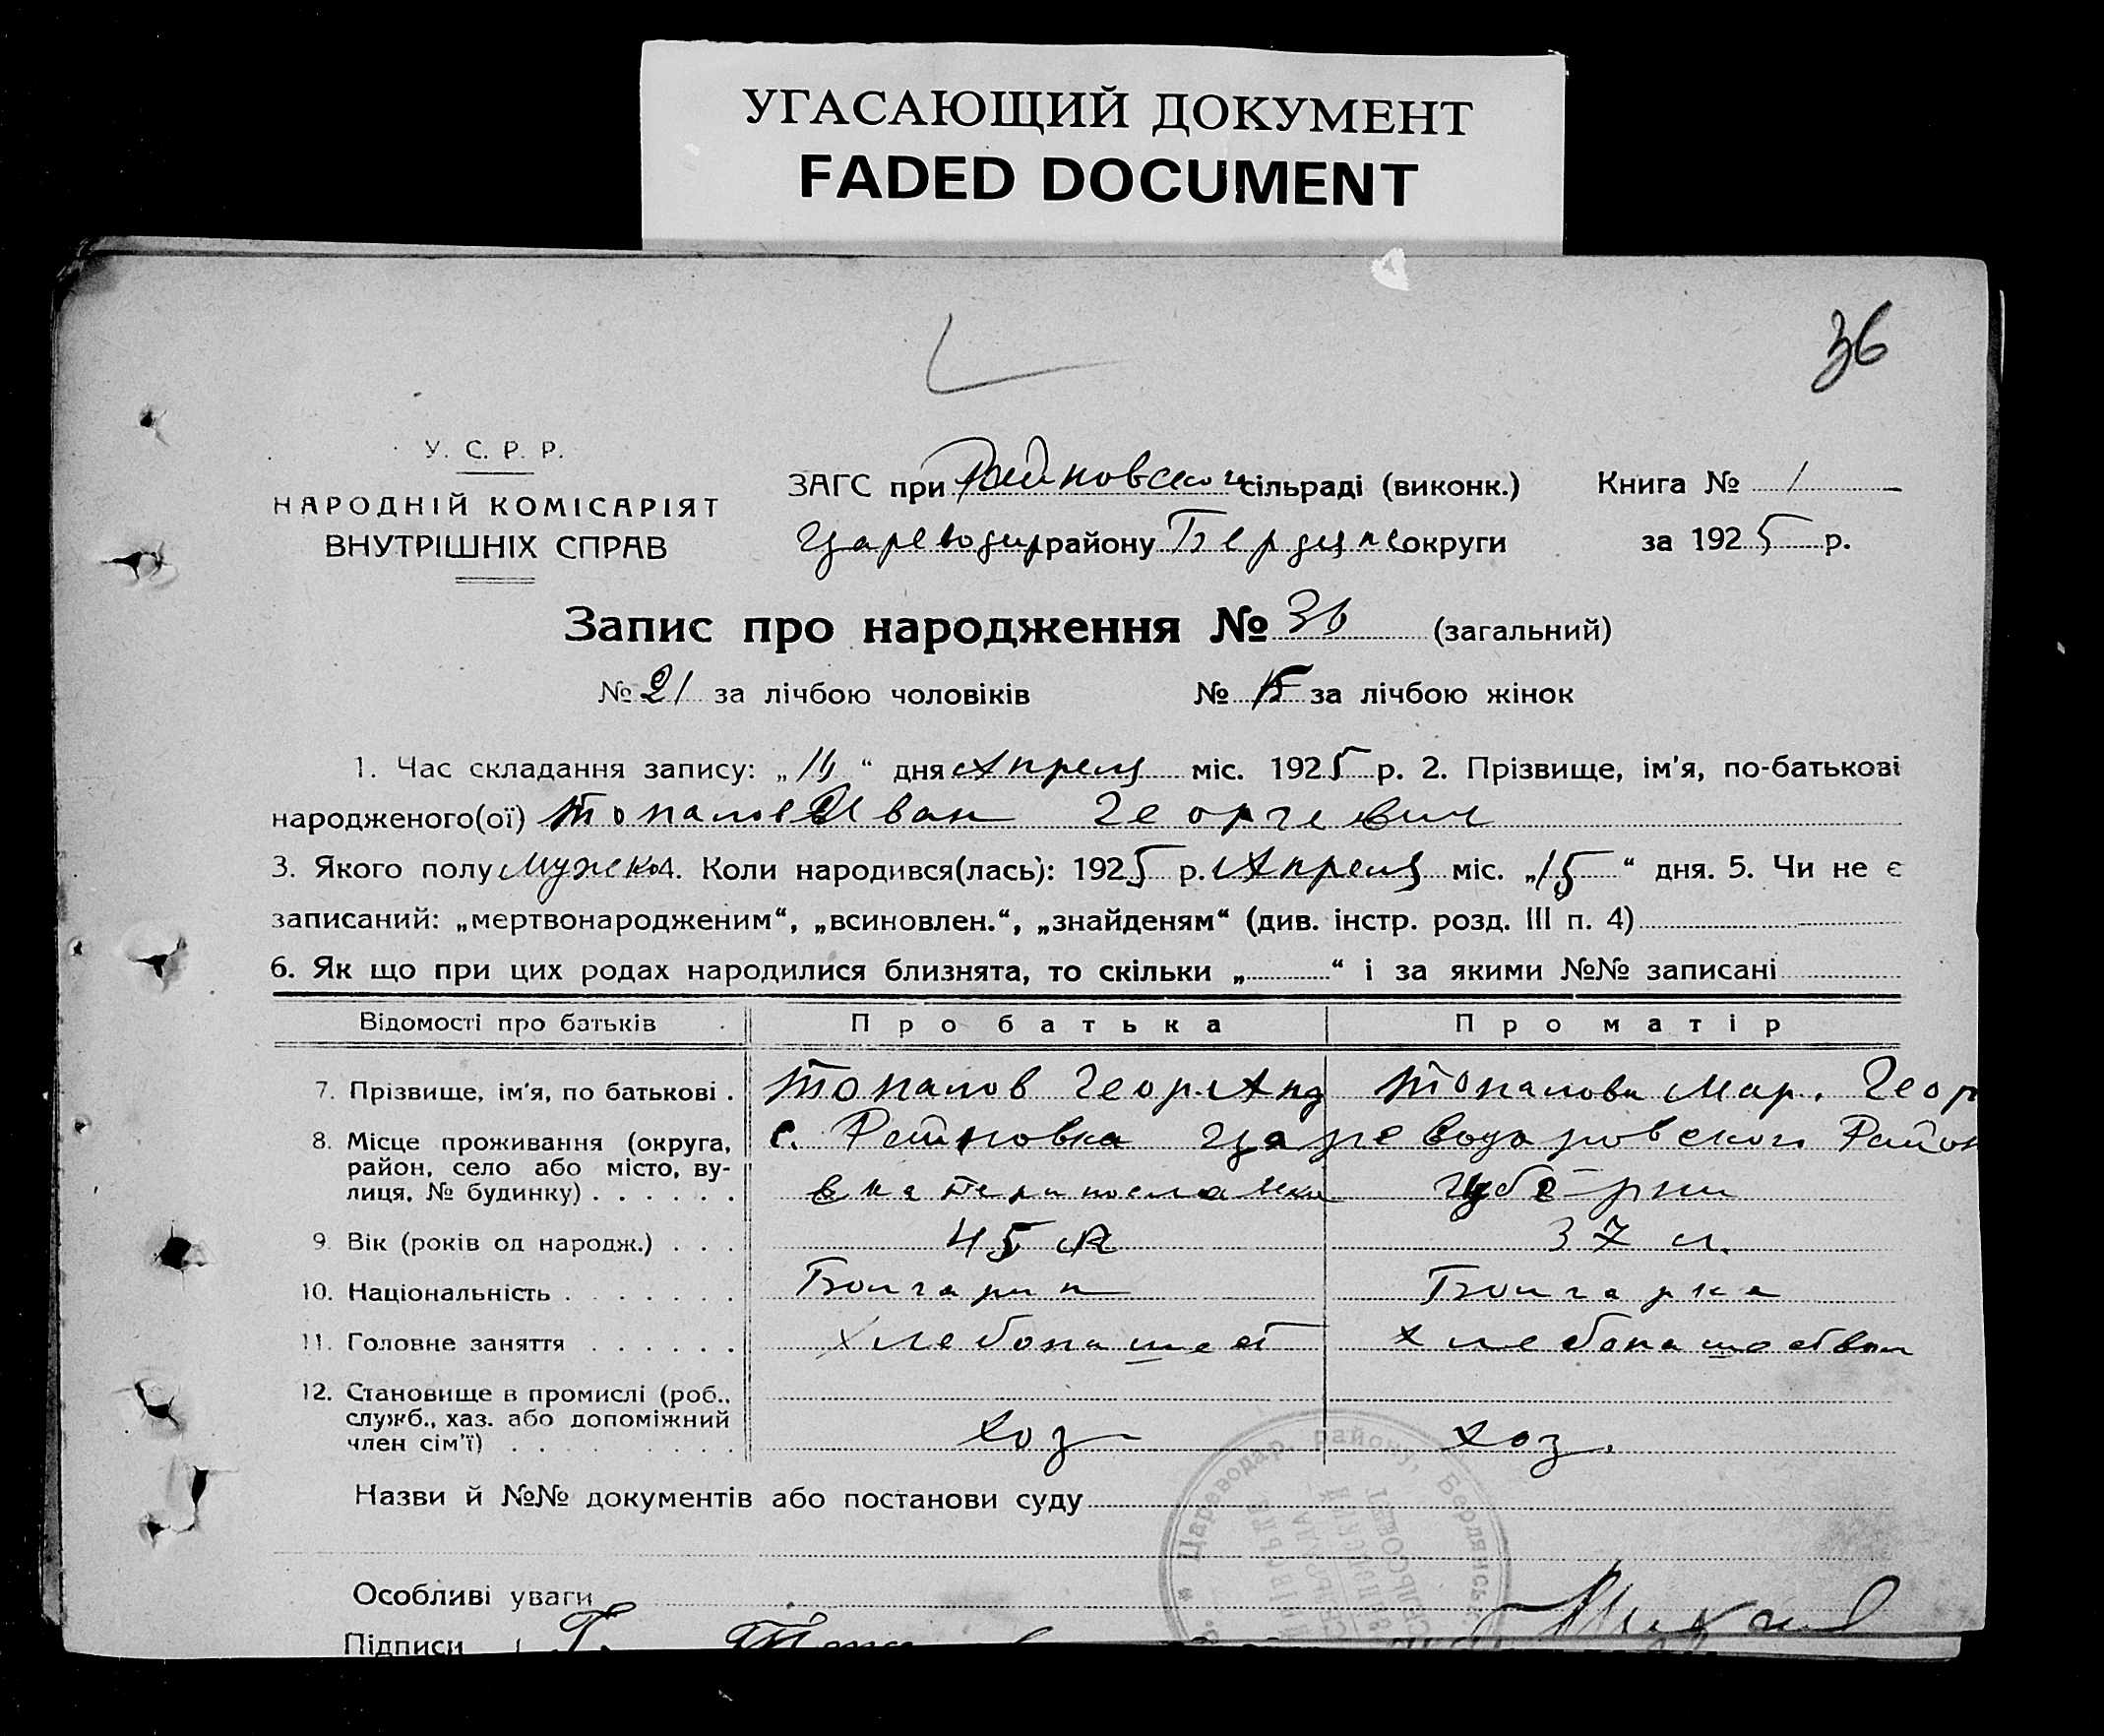 УГАСАЮЩИЙ ДОКУМЕНТ
FADED DOCUMENT
36
У. С. Р. Р.
НАРОДНІЙ КОМІСАРІЯТ
ВНУТРІШНІХ СПРАВ
ЗАГС при Райновской сільраді (виконк.) Книга № 1
Царевода району Бердянс округи за 1925 р.
Запис про народження № 36 (загальний)
№ 21 за лічбою чоловіків № за лічбою жінок
1. Час складання запису: „ “ дня Апреля міс. 1925 р. 2. Прізвище, ім'я, по-батькові
народженого(ої) Топалов Иван Георгевич
3. Якого полу Мужско 4. Коли народився(лась): 1925 р. Апреля міс. „15“ дня. 5. Чи не є
записаний: „мертвонародженим“, „всиновлен.“, „знайденям“ (див. інстр. розд. III п. 4)
6. Як що при цих родах народилися близнята, то скільки „ “ і за якими №№ записані
Відомості про батьків Про батька Про матір
7. Прізвище, ім'я, по батькові . Топалов Геор. Анд Топалова Мар. Геор
8. Місце проживання (округа, с. Райновка Царевода ровского Район
район, село або місто, ву-
лиця, № будинку) . . . . . . Екатеринославской губерни
9. Вік (років од народж.) . . . 45 л 37 л.
10. Національність . . . . . . . Болгарин Болгарка
11. Головне заняття . . . . . . Хлебопашест Хлебопашоством
12. Становище в промислі (роб.,
служб., хаз. або допоміжний
член сім'ї) . . . . . . . . . хоз хоз.
Назви й №№ документів або постанови суду
* Царевοдар. району, Бердянськ
Особливі уваги
Підписи Г.